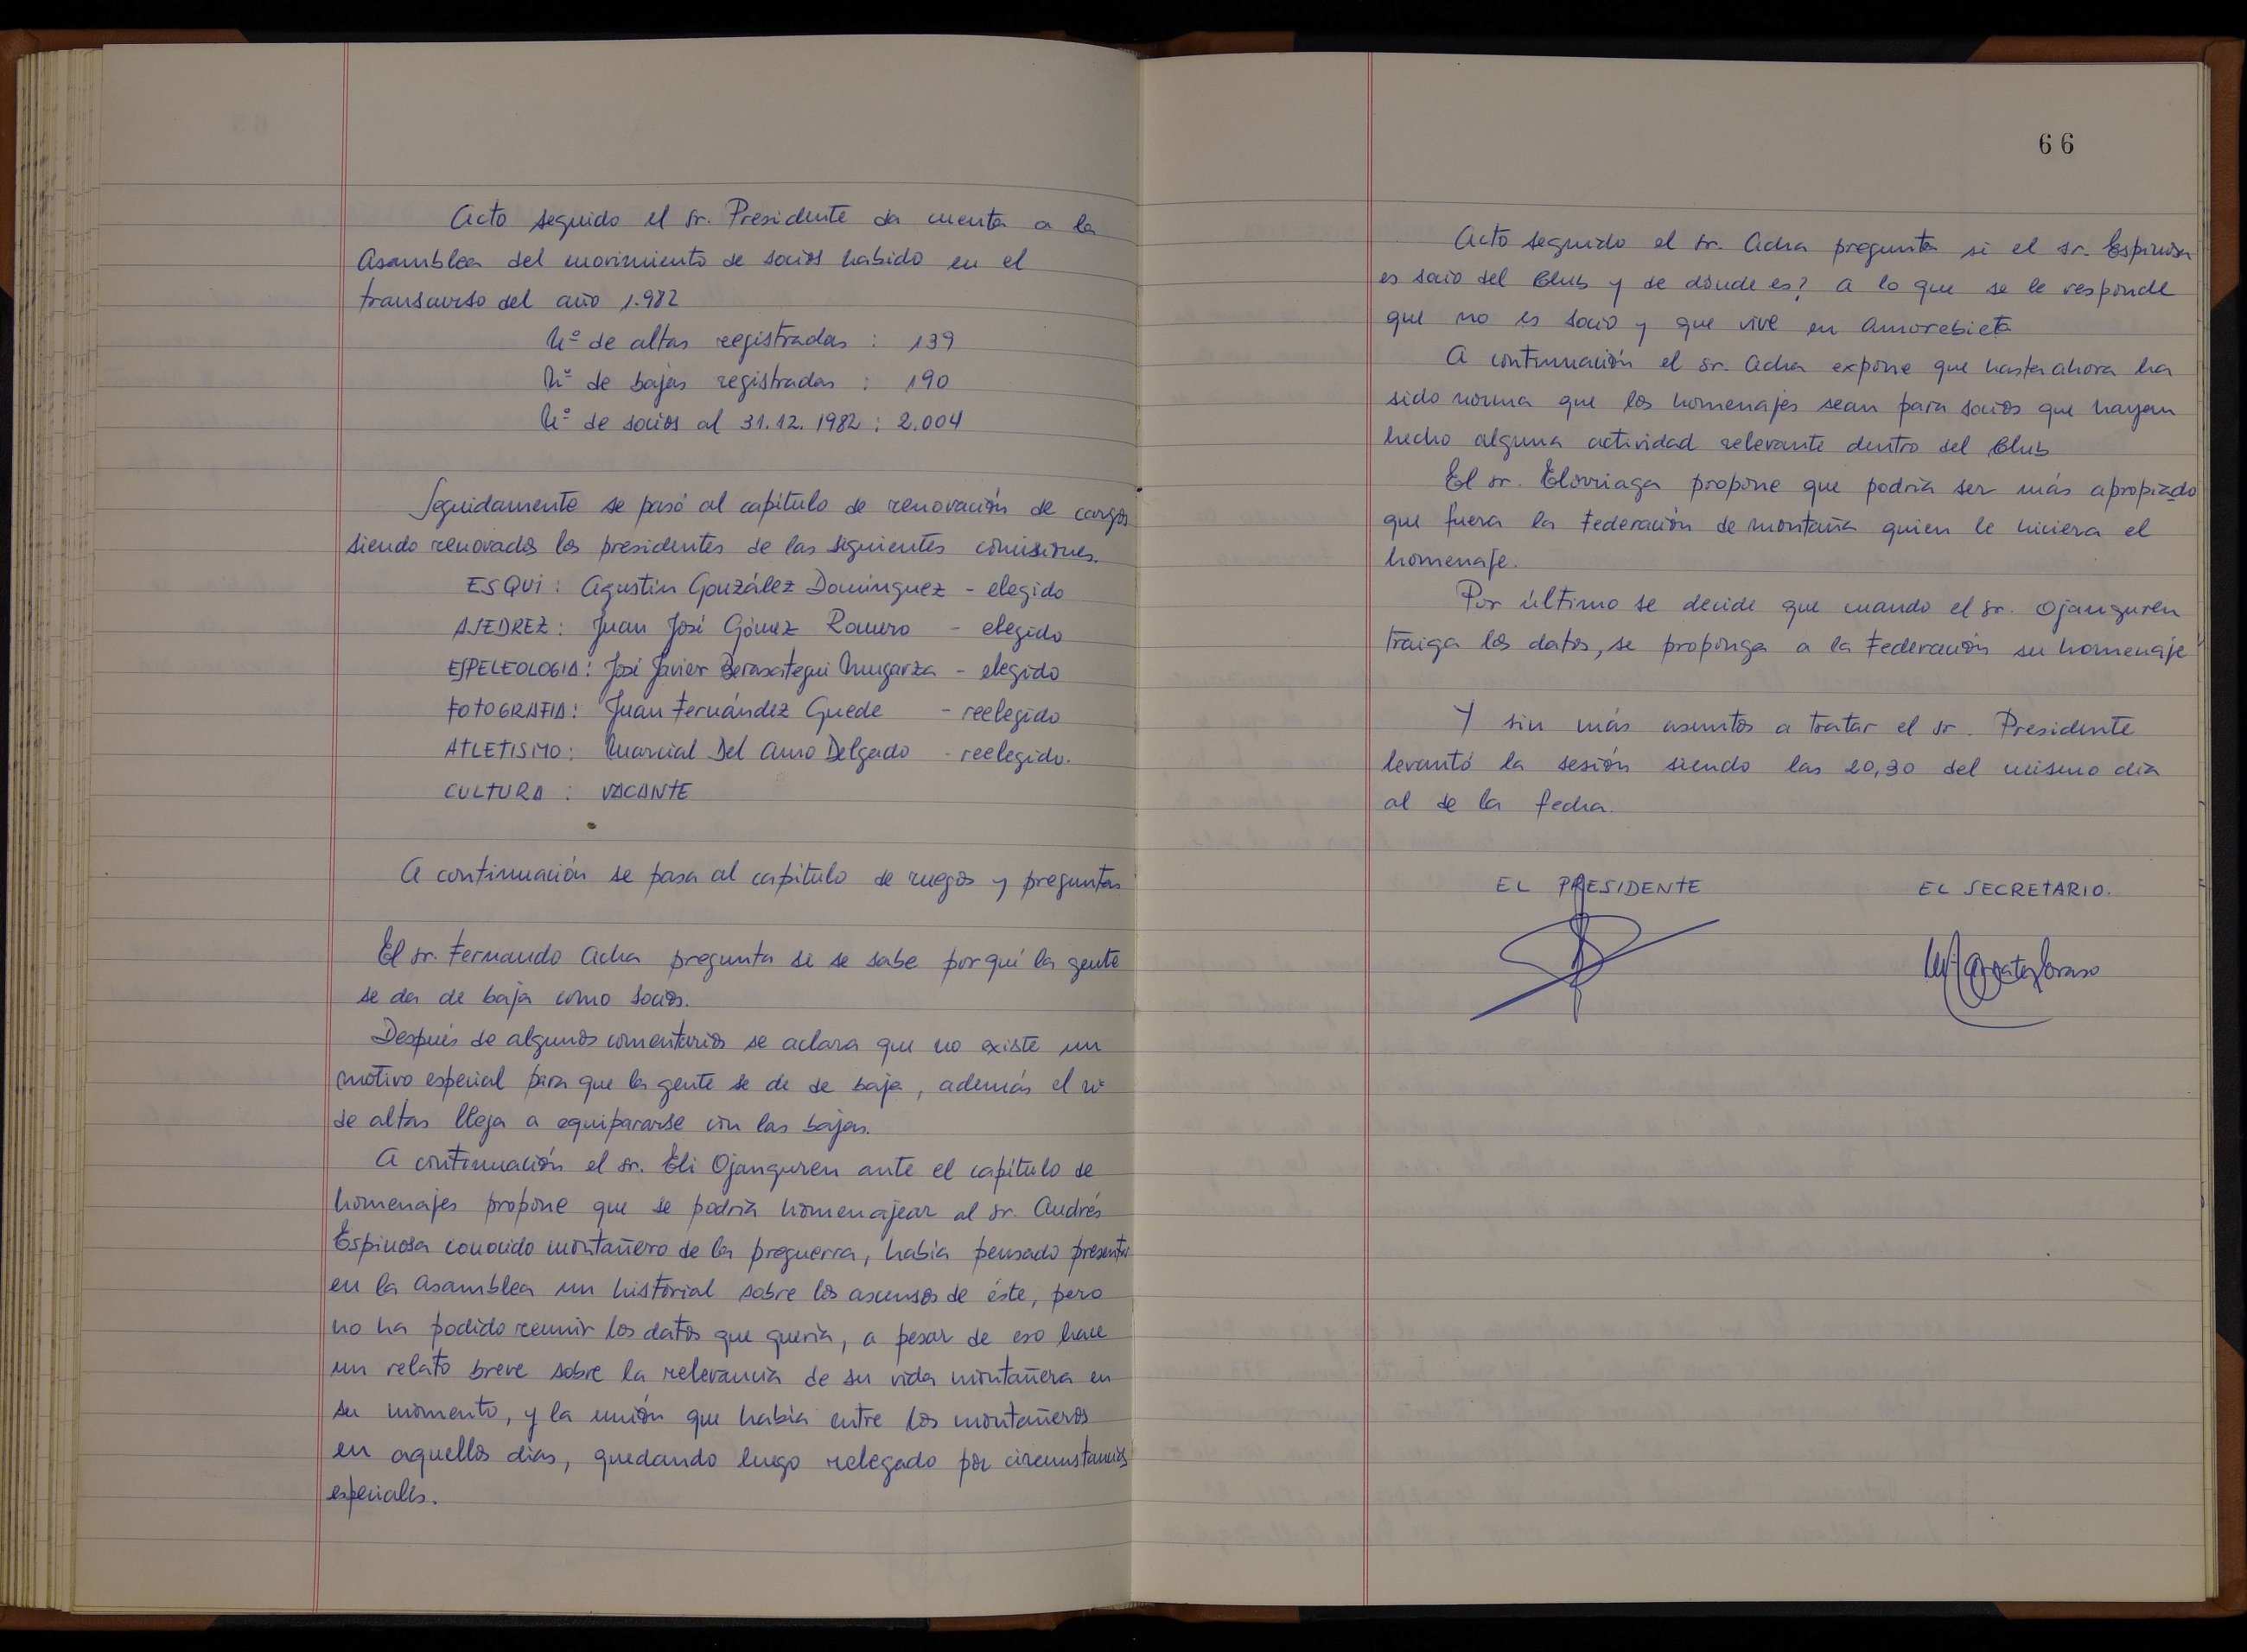 Acto seguido el Sr. Presidente da cuenta a la
Asamblea del movimiento de socios habido en el
transcurso del año 1.982
Nº de altas registradas : 139
Nº de bajas registradas : 190
Nº de socios al 31.12.1982 : 2.004
Seguidamente se pasó al capítulo de renovación de cargos
siendo renovados los presidentes de las siguientes comisiones.
ESQUI : Agustín González Domínguez - elegido
AJEDREZ : Juan José Gómez Romero - elegido
ESPELEOLOGIA : José Javier Berasategui Mugarza - elegido
FOTOGRAFIA : Juan Fernández Guede - reelegido
ATLETISMO : Marcial Del Amo Delgado - reelegido.
CULTURA : VACANTE
A continuación se pasa al capítulo de ruegos y preguntas
El Sr. Fernando Acha pregunta si se sabe por qué la gente
se da de baja como socios.
Después de algunos comentarios se aclara que no existe un
motivo especial para que la gente se de de baja, además el nº
de altas llega a equipararse con las bajas.
A continuación el Sr. Eli Ojanguren ante el capítulo de
homenajes propone que se podría homenajear al Sr. Andrés
Espinosa conocido montañero de la preguerra, había pensado presentar
en la Asamblea un historial sobre los ascensos de éste, pero
no ha podido reunir los datos que quería, a pesar de eso hace
un relato breve sobre la relevancia de su vida montañera en
su momento, y la unión que había entre los montañeros
en aquellos días, quedando luego relegado por circunstancias
especiales.
66
Acto seguido el Sr. Acha pregunta si el Sr. Espinosa
es socio del Club y de dónde es? a lo que se le responde
que no es socio y que vive en Amorebieta
A continuación el Sr. Acha expone que hasta ahora ha
sido norma que los homenajes sean para socios que hayan
hecho alguna actividad relevante dentro del Club
El Sr. Elorriaga propone que podría ser más apropiado
que fuera la Federación de montaña quien le hiciera el
homenaje.
Por último se decide que cuando el Sr. Ojanguren
traiga los datos, se proponga a la Federación su homenaje
Y sin más asuntos a tratar el Sr. Presidente
levantó la sesión siendo las 20,30 del mismo día
al de la fecha.
EL PRESIDENTE
EL SECRETARIO.